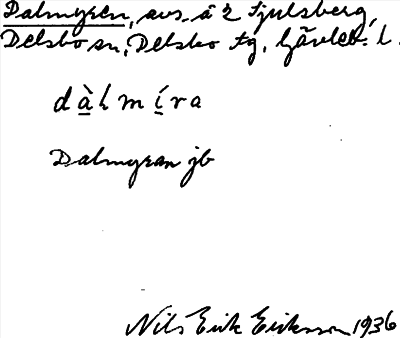 Dalmyren, avs. å 2 Fjulsberg,
Delsbo sn, Delsbo tg, Gävleb. l.
dàlmíra
Dalmyran jb
Nils Erik Eriksson 1936